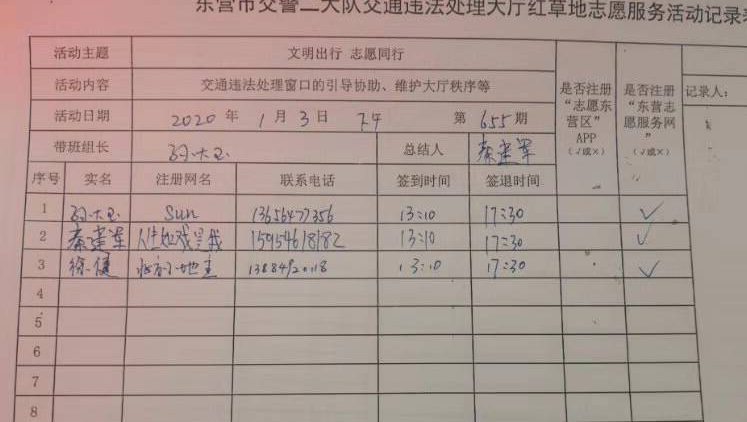 东营市交警二大队交通违法处理大厅红草地志愿服务活动记录表
活动主题 文明出行 志愿同行
活动内容 交通违法处理窗口的引导协助、维护大厅秩序等
是否注册“志愿东营区”APP（√或×）
是否注册“东营志愿服务网”（√或×）
记录人：
活动日期 2020 年 1 月 3 日 下午 第 655 期
带班组长 孙大玉 总结人 秦建军
序号 实名 注册网名 联系电话 签到时间 签退时间
1 孙大玉 Sun 13656477356 13:10 17:30 ✓
2 秦建军 15954618182 13:10 17:30 ✓
3 徐健 13:10 17:30 ✓
4
5
6
7
8